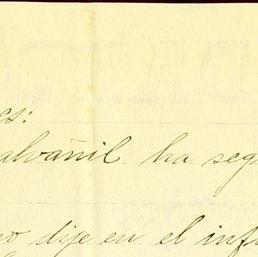 es:
alvañil ha seg
o dije en el inf